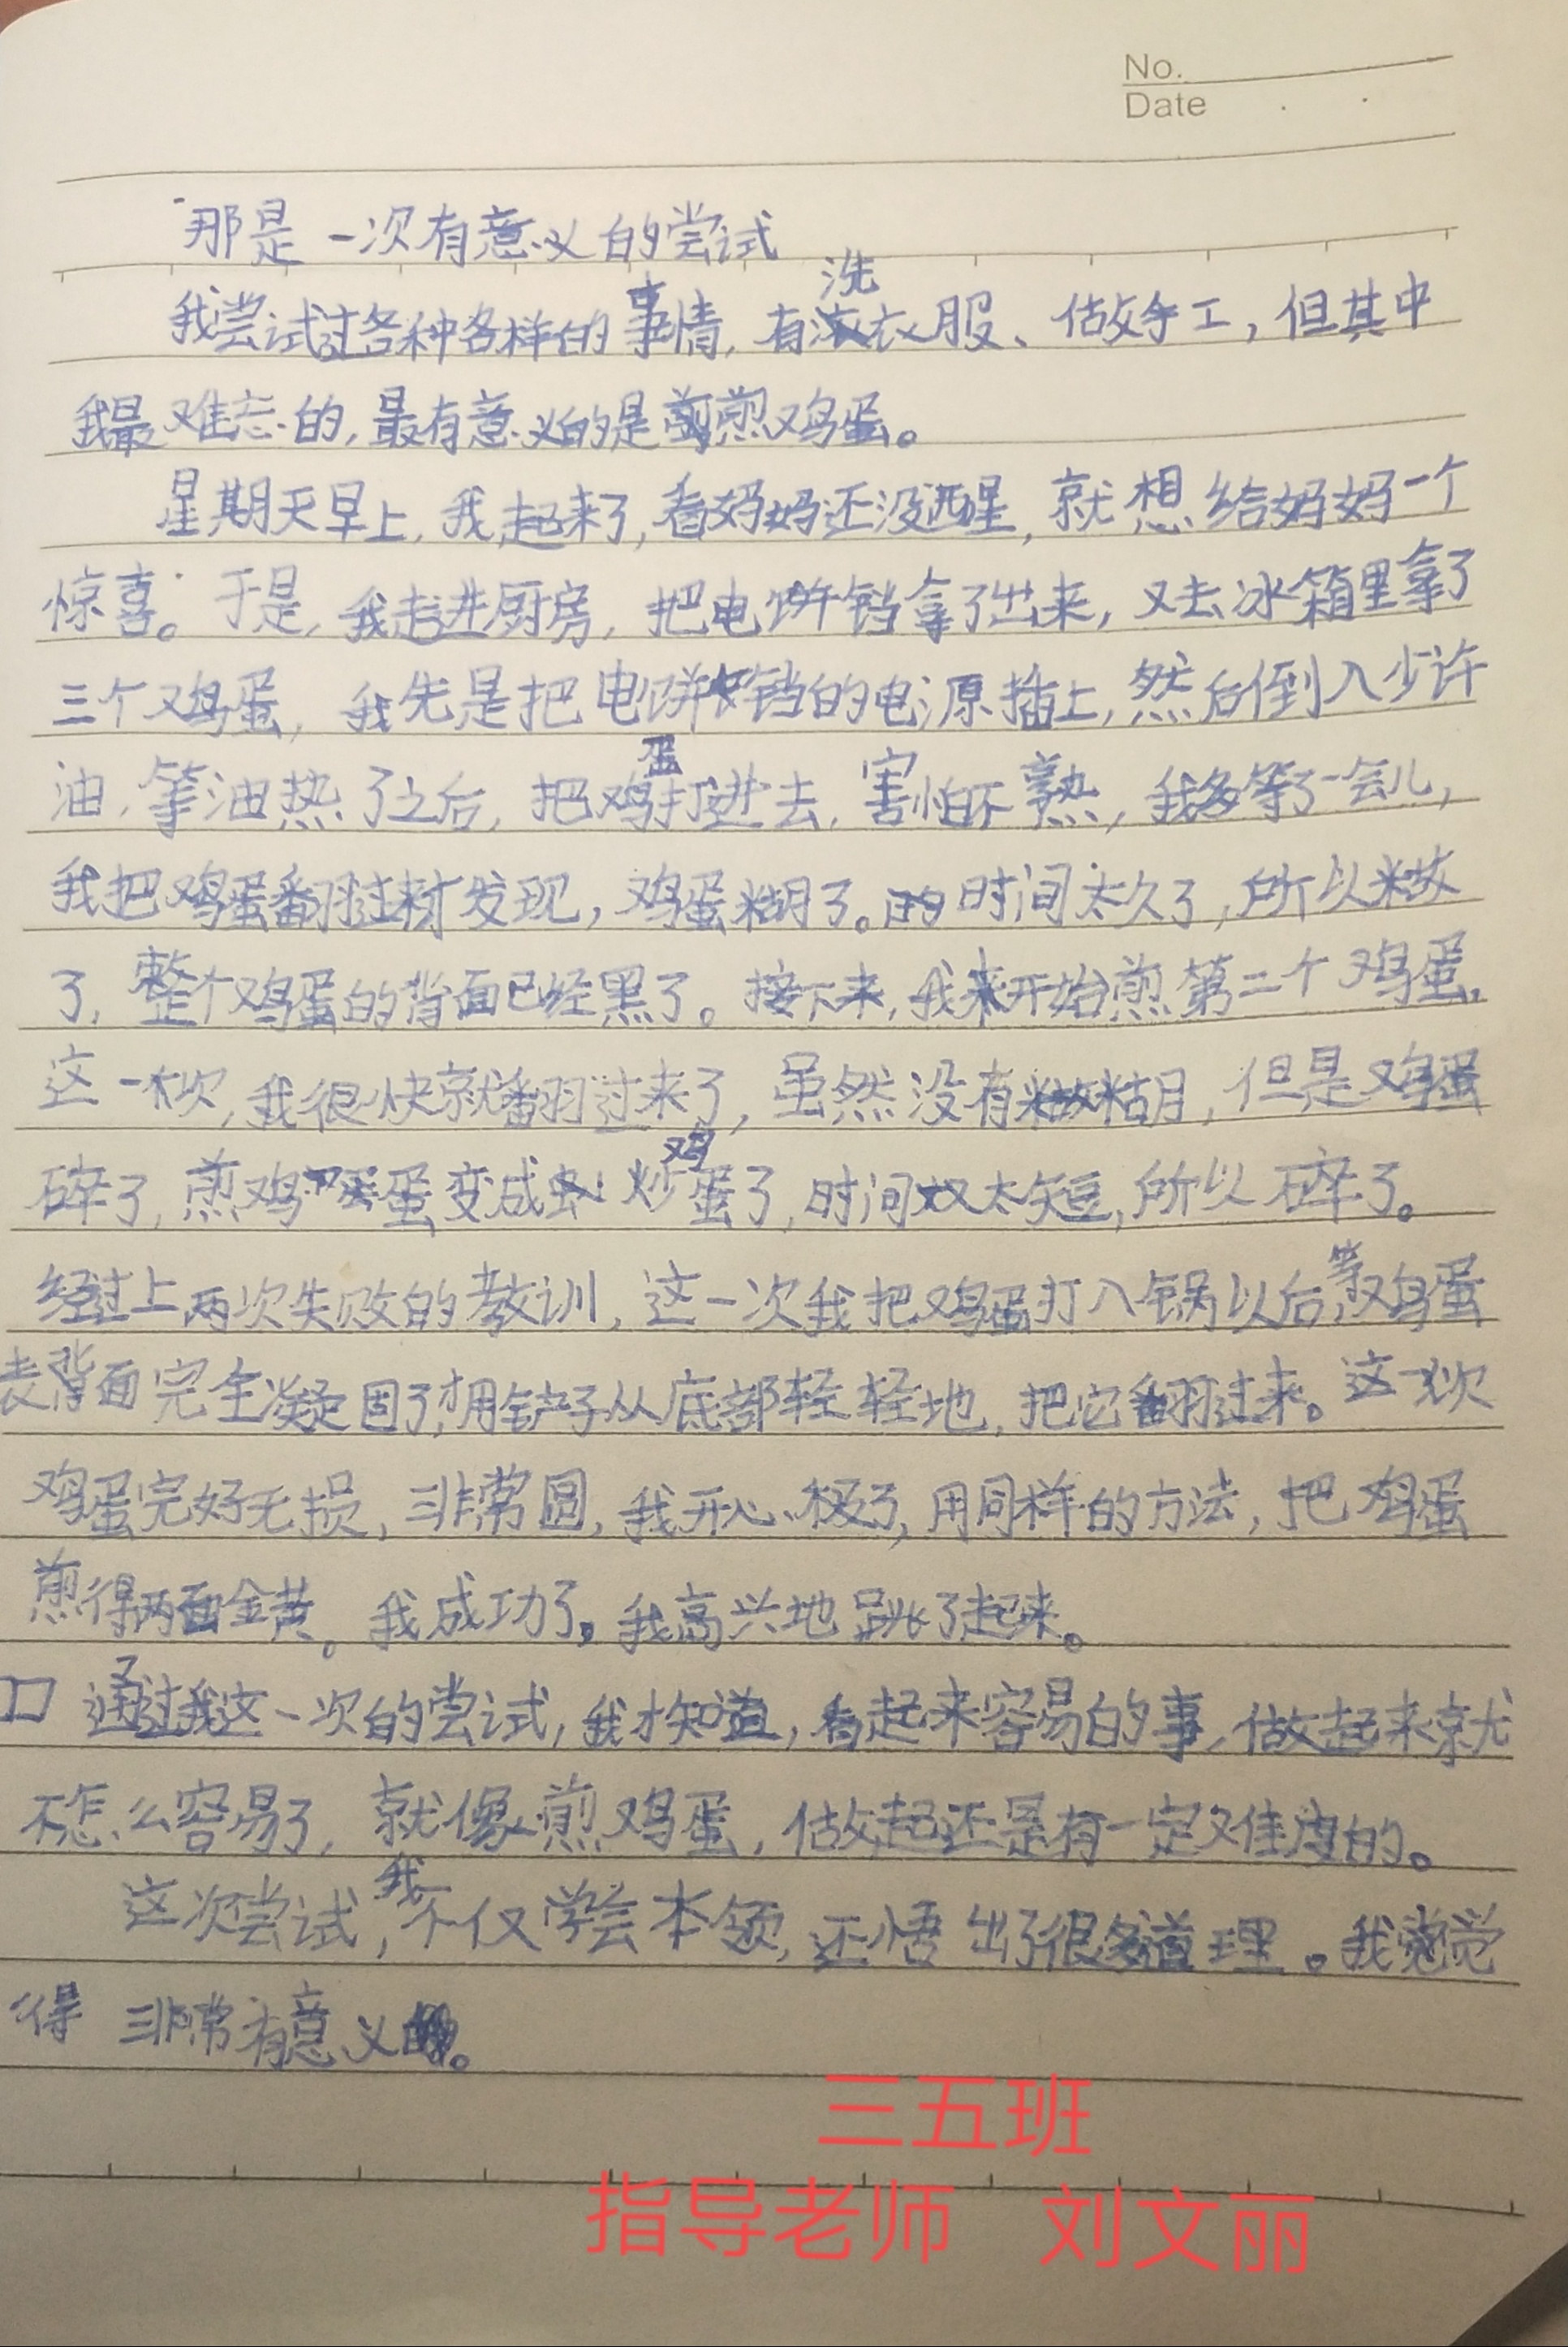 No.
Date
那是一次有意义的尝试
我尝试过各种各样的事情,有洗衣服、做手工,但其中
我最难忘的,最有意义的是煎鸡蛋。
星期天早上,我起来了,看妈妈还没醒,就想给妈妈一个
惊喜。于是,我走进厨房,把电饼铛拿了出来,又去冰箱里拿了
三个鸡蛋,我先是把电饼铛的电源插上,然后倒入少许
油,等油热了之后,把鸡蛋打进去,害怕不熟,我多等了一会儿,
我把鸡蛋翻过来才发现,鸡蛋糊了。时间太久了,所以
了,整个鸡蛋的背面已经黑了。接下来,我来开始煎第二个鸡蛋,
这一次,我很快就翻过来了,虽然没有糊,但是鸡蛋
碎了,煎鸡蛋变成炒鸡蛋了,时间又太短,所以碎了。
经过上两次失败的教训,这一次我把鸡蛋打入锅以后,等鸡蛋
表背面完全凝固了,才用铲子从底部轻轻地,把它翻过来。这一次
鸡蛋完好无损,非常圆,我开心极了,用同样的方法,把鸡蛋
煎得两面金黄。我成功了。我高兴地跳了起来。
通过了我这一次的尝试,我才知道,看起来容易的事,做起来就
不怎么容易了,就像煎鸡蛋,做起还是有一定难度的。
这次尝试,我不仅学会本领,还悟出了很多道理。我觉
得非常有意义。
三五班
指导老师 刘文丽